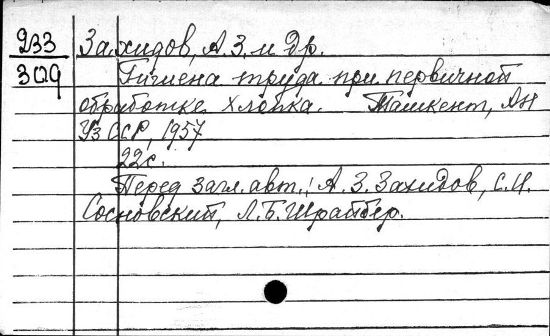 233 Захидов, А.З. и др.
309 Гигиена труда при первичной
обработке хлопка. Ташкент, АН
УзССР, 1957
22с.
Перед загл. авт.: А.З. Захидов, С.И.
Сосновский, Л.Б. Шрайбер.